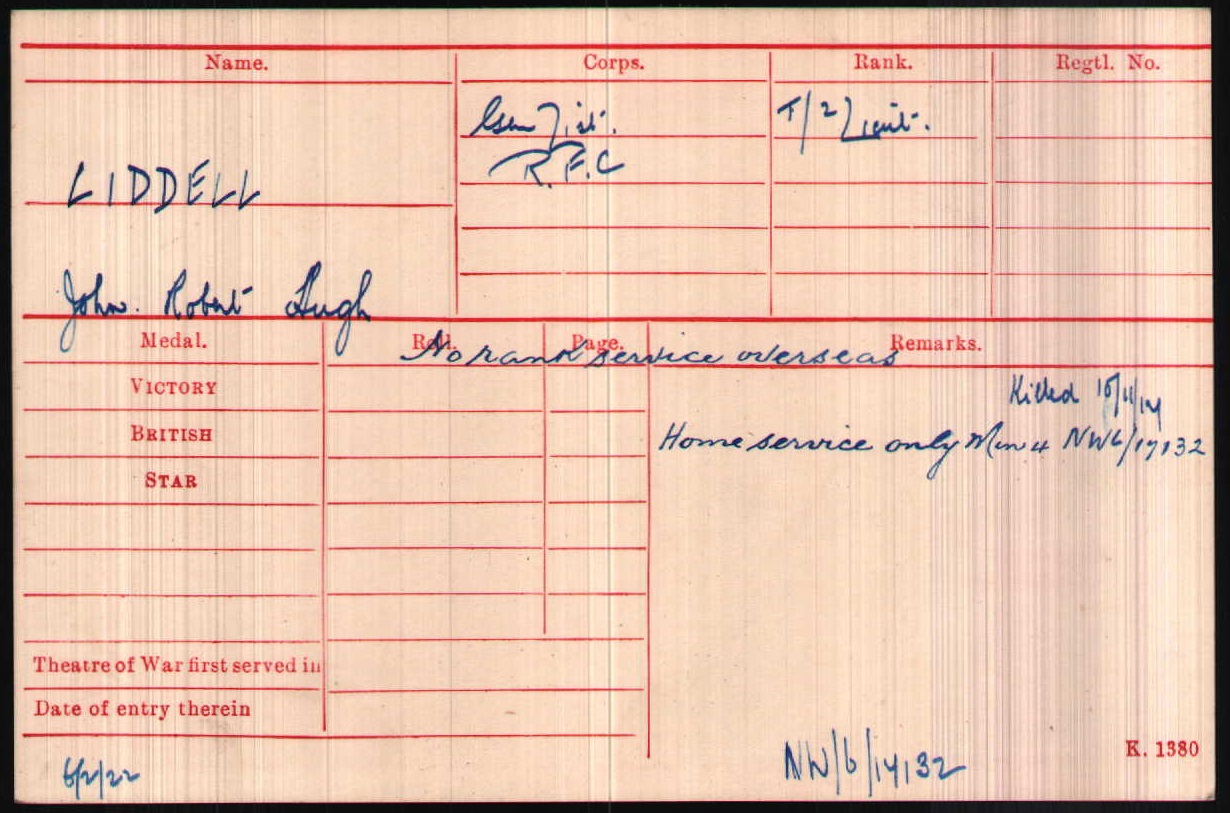 Name. Corps. Rank. Regtl. No.
Gen List. T/2 Lieut.
R.F.C
LIDDELL
John. Robert Hugh
Medal. Roll. Page. Remarks.
No rank service overseas
VICTORY
Killed
BRITISH
Home service only Min 4 NW6/17132
STAR
Theatre of War first served in
Date of entry therein
6/2/22
NW/6/17132
K. 1380